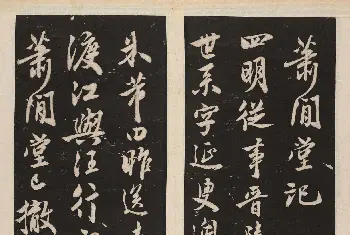 蕭閒堂記
四明從事晉陵
世系字延更
米芾昨送
渡江與汪行
蕭閒堂已撤